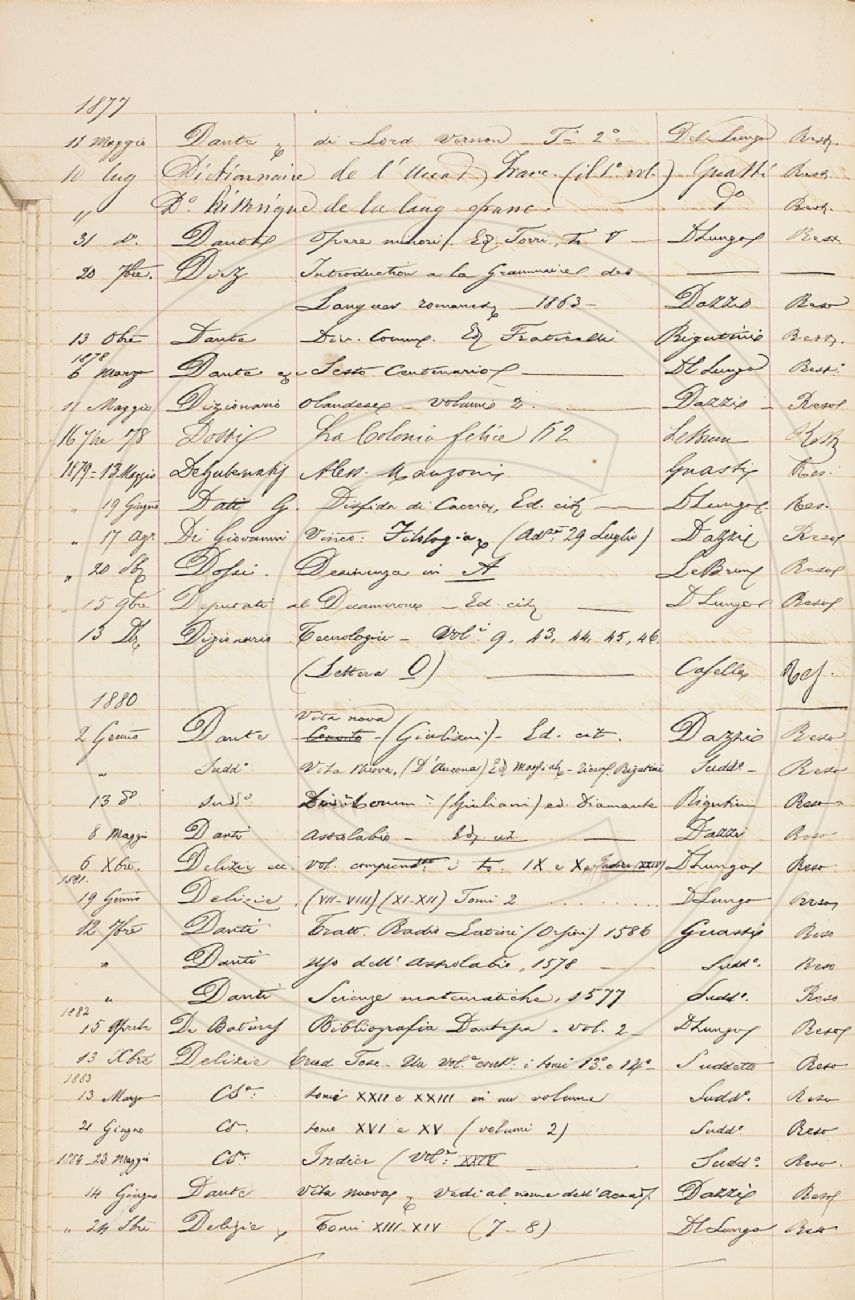 1877
11 Maggio Dante di Lord Vernon - T. 2° Del Lungo Rest.
10 lug Dictionnaire de l'Acad. Franc. (il 1° vol.) Guasti Rest.
" D.° historique de la lang. franc. D° Rest.
31 d.° Dante Opere minori. Ed. Torri, to. V - D Lungo Rest.
20 7bre. Diez Introduction a la Grammaire des
Langues romanes - 1863 - Dazzi Reso
13 Obre Dante Div. Comm. Ed. Fraticelli Rigutini Rest.
1878
6 Marzo Dante Sesto Centenario Dl Lungo Rest.
11 Maggio Dizionario Olandese - volumi 2. Dazzi - Reso
16 7bre 78 Dossi La Colonia felice LeBrun Rest.
1879 - 13 Maggio DeGubernatis Aless. Manzoni Guasti Res.
" 19 Giugno Dati G. Disfida di Caccia, Ed. cit. D Lungo Res.
" 17 Ago. Di Giovanni Vinc: Filologia (Ad.za 29 Luglio) Dazzi Reso
" 20 Dossi. Desinenza in A LeBrun Reso
15 9bre Deputati al Decamerone - Ed. cit. D Lungo Reso
13 Dizionario Tecnologico - Vol.i 9, 43, 44, 45, 46.
(Lettera O) Caselli Res.
1880
Vita nova
2 Genn.o Dante - Convito - (Giuliani) - Ed. cit. Dazzi Reso
" Sudd.° Vita Nuova, (D'Ancona) Rigutini Sudd.° - Reso
13 d.° Sudd.° (Giuliani) ed. diamante Rigutini Reso
8 Maggio Danti Astrolabio - Ed. cit. Dazzi Reso
6 Xbre. Delizie ec. vol. i to. IX e X, Indice XXIV) D Lungo Reso
1881.
19 Genn.o Delizie. (VII-VIII) (XI-XII) Tomi 2 D Lungo Reso
12 7bre Danti Tratt. Radio Latino (Orsini) 1586 Guasti Reso
" Danti Uso dell'Astrolabio, 1578 - Sudd.° Reso
" Danti Scienze matematiche, 1577 Sudd.° Reso
1882
15 Aprile De Batines Bibliografia Dantesca - vol. 2 - D Lungo Reso
13 Xbre Delizie Erud. Tosc. - Un vol.e cont.e i tomi 13° e 14° - Suddetto Reso
1883
13 Marzo tomi XXII e XXIII in un volume Sudd.° Reso
21 Giugno tomi XVI e XV (volumi 2) Sudd.° Reso
1884 - 23 Maggio Indici (Vol.e XXIV Sudd.° Reso.
14 Giugno Dante Vita nuova, vedi al nome dell'Accad. Dazzi Reso
" 24 Delizie, Tomi XIII-XIV (7-8) Dl Lungo Reso